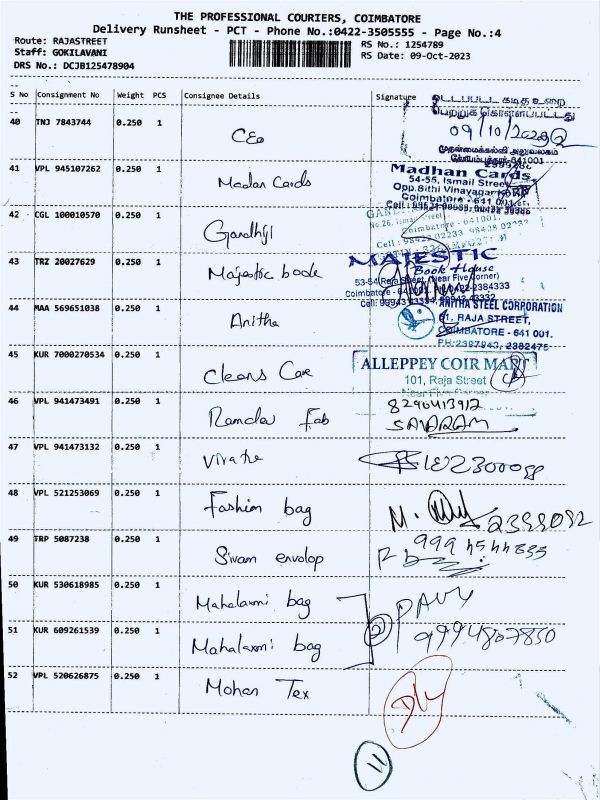 THE PROFESSIONAL COURIERS, COIMBATORE
Delivery Runsheet - PCT - Phone No.:0422-3505555 - Page No.:4
Route: RAJASTREET
RS No.: 1254789
Staff: GOKILAVANI
RS Date: 09-Oct-2023
DRS No.: DCJB125478904
S No Consignment No Weight PCS Consignee Details Signature
40 TNJ 7843744 0.250 1 CEO
பெற்றுக் கொள்ளப்பட்டது
09/10/2023
முதன்மைக்கல்வி அலுவலகம்
41 VPL 945107262 0.250 1 Madan Cards
Madhan Cards
54-55, Ismail Street
Opp.Sithi Vinayagar
Coimbatore - 641 001
42 CGL 100010570 0.250 1 Gandhiji
No.26, Ismail Street
Coimbatore - 641001
43 TRZ 20027629 0.250 1 Majestic book
MAJESTIC
Book House
53-54 Raja Street, (Near Five Corner)
Coimbatore - 641001 0422-2384333
44 MAA 569651038 0.250 1 Anitha
ANITHA STEEL CORPORATION
61, RAJA STREET,
COIMBATORE - 641 001.
PH: 2397943, 2382475
45 KUR 7000270534 0.250 1 Cleans Care
ALLEPPEY COIR MART
101, Raja Street
Near Five Corner
46 VPL 941473491 0.250 1 Ramdev Fab
8296413912
47 VPL 941473132 0.250 1
48 VPL 521253069 0.250 1 Fashion bag
M.
49 TRP 5087238 0.250 1 Sivam envolop
50 KUR 530618985 0.250 1 Mahalaxmi bag
51 KUR 609261539 0.250 1 Mahalaxmi bag
2
9994807850
52 VPL 520626875 0.250 1 Mohan Tex
11